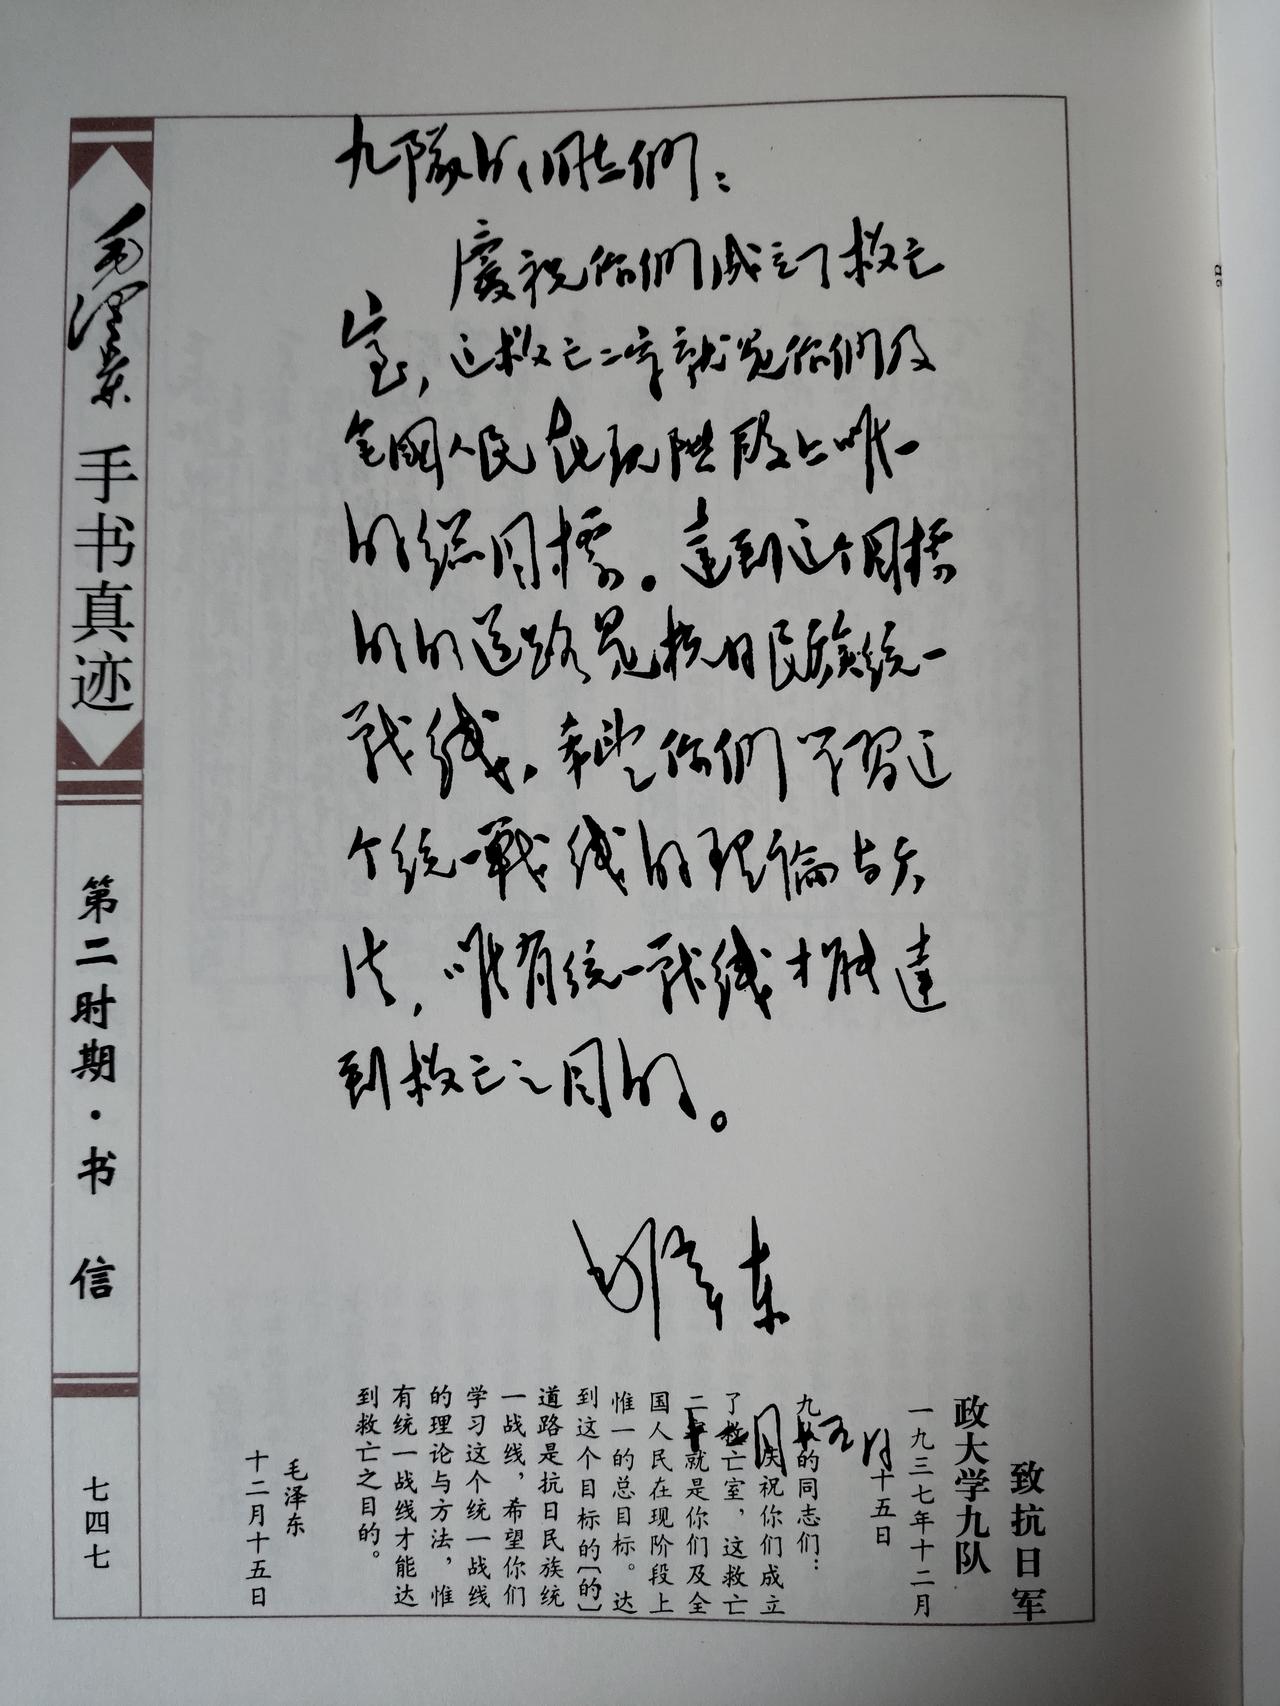 毛泽东
手书真迹
第二时期·书信
七四七
九隊的同志們：
慶祝你們成立了救亡
室，这救亡二字就是你們及
全國人民在现階段上唯一
的總目標。達到这个目標
的的道路是抗日民族统一
战线，希望你們学習这
个统一戰线的理論与方
法，唯有统一战线才能達
到救亡之目的。
毛泽东
十二月十五日
致抗日军
政大学九队
一九三七年十二月
十五日
九队的同志们：
庆祝你们成立
了救亡室，这救亡
二字就是你们及全
国人民在现阶段上
惟一的总目标。达
到这个目标的〔的〕
道路是抗日民族统
一战线，希望你们
学习这个统一战线
的理论与方法，惟
有统一战线才能达
到救亡之目的。
毛泽东
十二月十五日